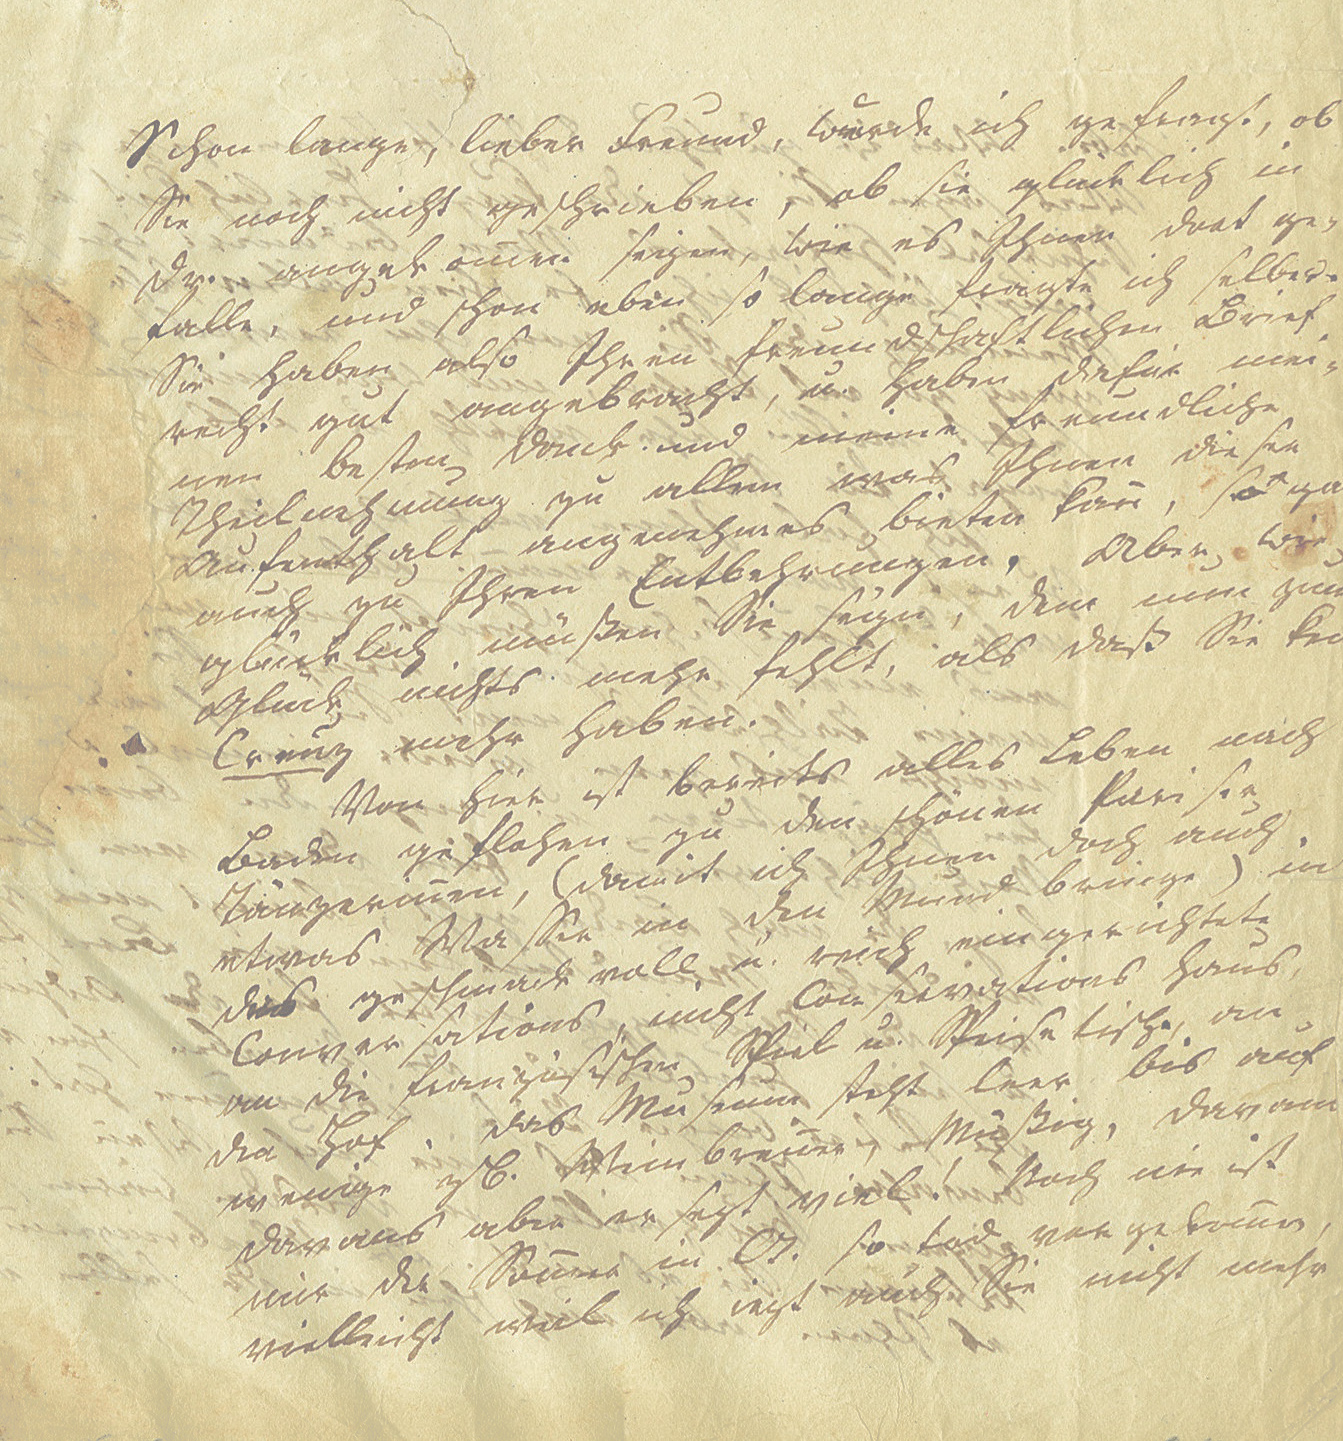 Schon lange, lieber Freund, wurde ich gefragt, ob
Sie noch nicht geschrieben, ob sie glücklich in
Dr. angekom̄en seyen, wie es Ihnen dort ge-
falle, und schon eben so lange fragte ich selber.
Sie haben also Ihren freundschaftlichen Brief
recht gut angebracht, u. haben dafür mei-
nen besten Dank und meine freundliche
Theilnehmung zu allem was Ihnen dieser
Aufenthalt angenehmes bieten kan̄, so
auch zu Ihren Entbehrungen. Aber wie
glücklich müßen Sie seyn, dem nun zum
Glück nichts mehr fehlt, als daß Sie kein
Creuz mehr haben.
Von hier ist bereits alles Leben nach
Baden geflohen zu den schönen Pariser
Tänzerin̄en, (damit ich Ihnen doch auch
etwas Wasser in den Mund bringe) in
das geschmackvoll u. reich eingerichtete
Conversations, nicht Conservations Haus,
an die französischen Spiel u. Speisetische, an
den Hof. Das Museum steht leer bis auf
wenige Weinbren̄er, Müßig,
Davans aber ersezt viel! Noch nie ist
mir der Som̄er in C. so tod vorgekom̄en,
vielleicht weil ich iezt auch Sie nicht mehr